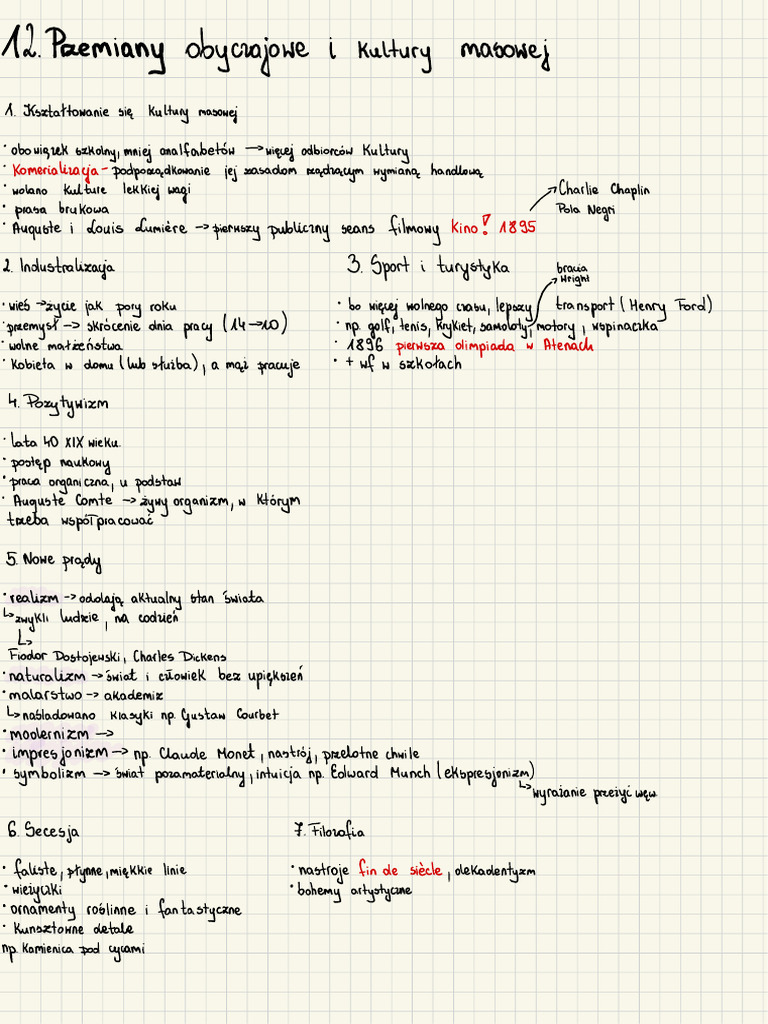 12. Przemiany obyczajowe i kultury masowej
1. Kształtowanie się kultury masowej
• obowiązek szkolny, mniej analfabetów → więcej odbiorców kultury
• Komerializacja - podporządkowanie jej zasadom rządzącym wymianą handlową
• wolano kulturę lekkiej wagi
• prasa brukowa
• Auguste i Louis Lumière → pierwszy publiczny seans filmowy kino! 1895
Charlie Chaplin
Pola Negri
2. Industralizacja
• wieś → życie jak pory roku
• przemysł → skrócenie dnia pracy (14→10)
• wolne małżeństwa
• kobieta w domu (lub służba), a mąż pracuje
3. Sport i turystyka
bracia
Wright
• bo więcej wolnego czasu, lepszy transport (Henry Ford)
• np. golf, tenis, krykiet, samoloty, motory, wspinaczka
• 1896 pierwsza olimpiada w Atenach
• + wf w szkołach
4. Pozytywizm
• lata 40 XIX wieku.
• postęp naukowy
• praca organiczna, u podstaw
• Auguste Comte → żywy organizm, w którym
trzeba współpracować
5. Nowe prądy
• realizm → oddają aktualny stan świata
↳ zwykli ludzie, na codzień
↳
Fiodor Dostojewski, Charles Dickens
• naturalizm → świat i człowiek bez upiększeń
• malarstwo → akademiz
↳ naśladowano klasyki np. Gustaw Courbet
• modernizm →
• impresjonizm → np. Claude Monet, nastrój, przelotne chwile
• symbolizm → świat pozamaterialny, intuicja np. Edward Munch (ekspresjonizm)
↳ wyrażanie przeżyć wew.
6. Secesja
• faliste, płynne, miękkie linie
• wieżyczki
• ornamenty roślinne i fantastyczne
• kunsztowne detale
np. kamienica pod cycami
7. Filozofia
• nastroje fin de siècle, dekadentyzm
• bohemy artystyczne